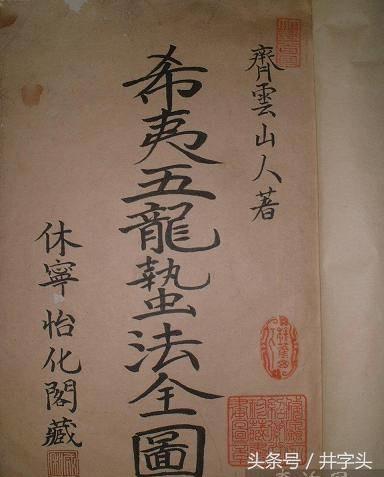 齊雲山人著
希夷五龍蟄法全圖
休寧怡化閣藏
头条号／井字头